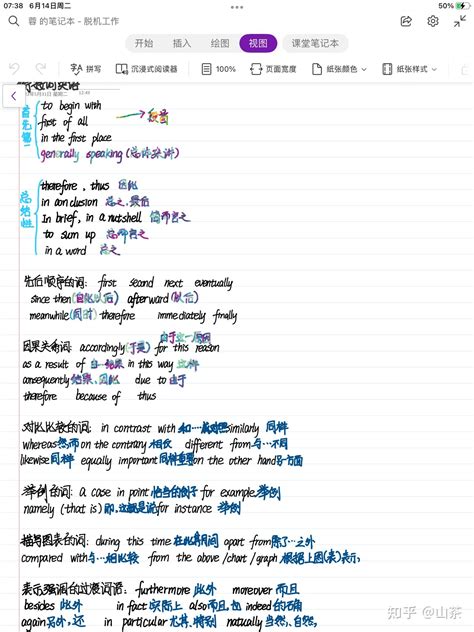 07:38 6月14日周二
50%
蓉 的笔记本 - 脱机工作
开始 插入 绘图 视图 课堂笔记本
拼写 沉浸式阅读器 100% 页面宽度 纸张颜色 纸张样式
to begin with
first of all
in the first place
generally speaking (总体来讲)
首先第一
总结性
therefore , thus 因此
in conclusion 总之,最后
In brief, in a nutshell 简而言之
to sum up 总而言之
in a word 总之
先后顺序的词: first second next eventually
since then(自此以后) afterward(以后)
meanwhile(同时) therefore immediately finally
由于这一原因
因果关系词: accordingly(于是) for this reason
as a result of 由…结果 in this way 这样
consequently 结果、因此 due to 由于
therefore because of thus
对比比较的词: in contrast with 和…成对照 similarly 同样
whereas 然而 on the contrary 相反 different from 与…不同
likewise 同样 equally important 同样重要 on the other hand 另一方面
举例的词: a case in point 恰当的例子 for example 举例
namely (that is) 即,这就是说 for instance 举例
描写图表的词: during this time 在此期间 apart from 除了…之外
compared with 与…相比较 from the above /chart /graph 根据上图(表)表示,
表示强调的过渡词语: furthermore 此外 moreover 而且
besides 此外 in fact 实际上 also 而且,包 indeed 的确
again 另外,还 in particular 尤其,特别 naturally 当然、自然,
知乎 @山茶